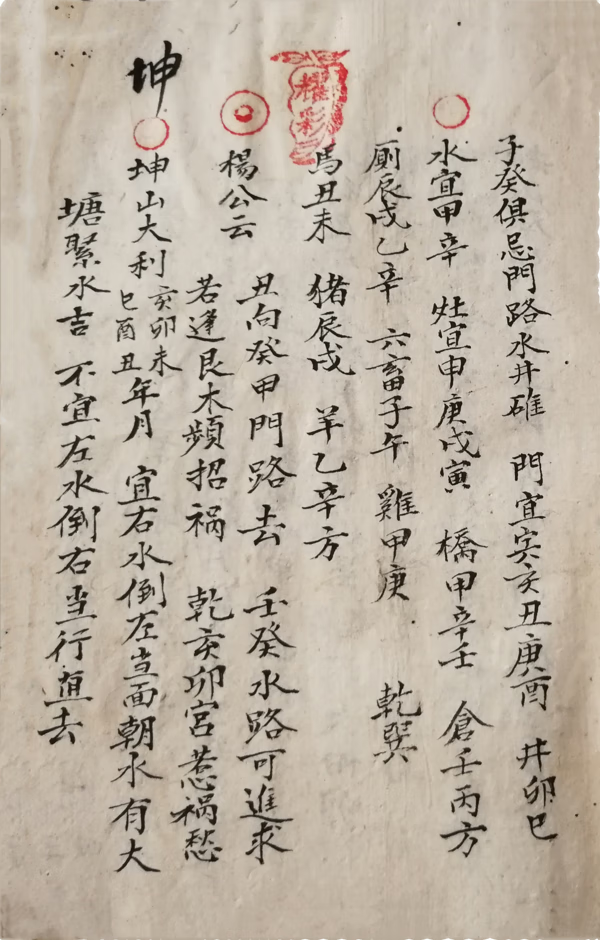 子癸俱忌門路水井碓 門宜寅亥丑庚酉 井卯巳
水宜甲辛 灶宜申庚戌寅 橋甲辛壬 倉壬丙方
厠辰戌乙辛 六畜子午 雞甲庚 乾巽
馬丑未 豬辰戌 羊乙辛方
楊公云 丑向癸甲門路去 壬癸水路可進求
若逢艮木頻招禍 乾亥卯宮惹禍愁
坤
坤山大利 亥卯未 巳酉丑 年月 宜右水倒左当面朝水有大
塘聚水吉 不宜左水倒右当行直去
耀彩